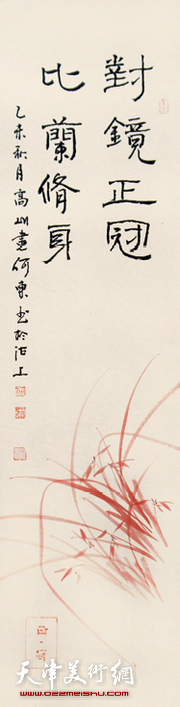 對鏡正冠
比蘭脩身
乙未秋月高山畫何東書於沽上
天津美术網
www.022meishu.com